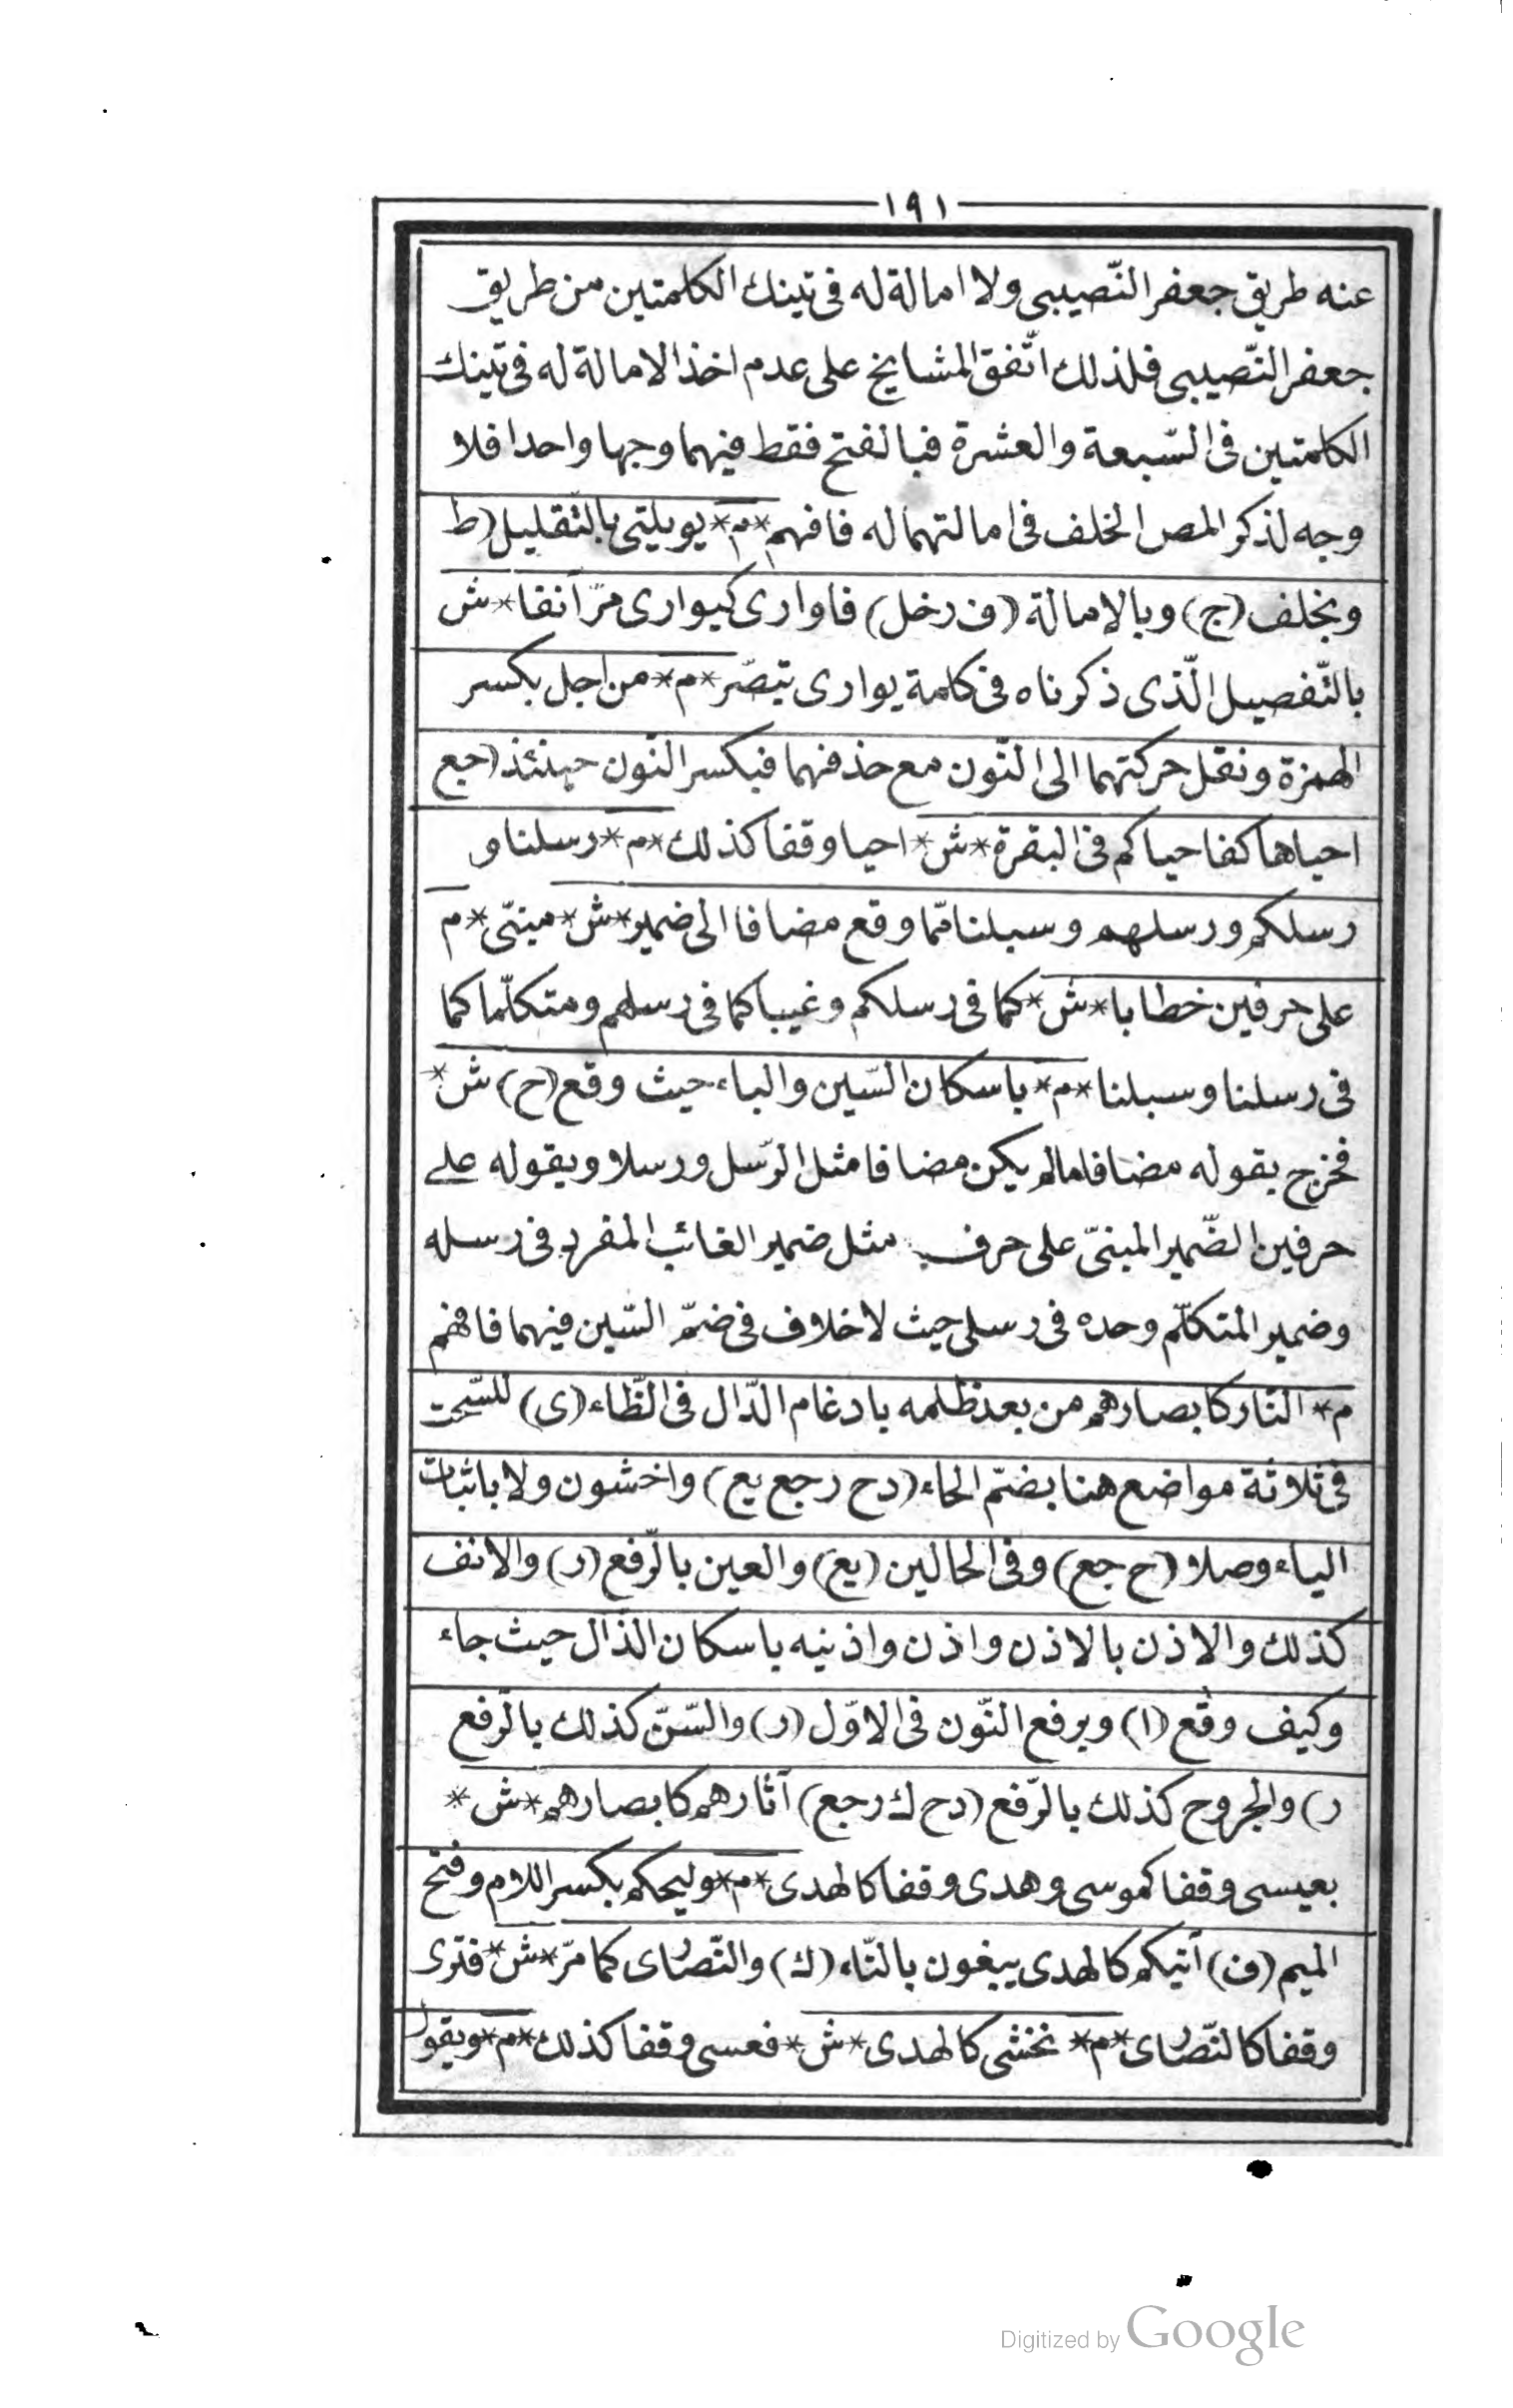 ١٩١
عنه طريق جعفر النّصيبى ولا امالة له فى تينك الكلمتين من طريق
جعفر النّصيبى فلذلك اتّفق المشايخ على عدم اخذ الامالة له فى تينك
الكلمتين فى السّبعة والعشرة فبالفتح فقط فيهما وجها واحدا فلا
وجه لذكر المص الخلف فى امالتهما له فافهم * م * يويلتى بالتّقليل (ط
وبخلف (ج) وبالامالة (ف رخل) فاوارى كيوارى مرّ آنفا * ش
بالتّفصيل الّذى ذكرناه فى كلمة يوارى تبصّر * م * من اجل بكسر
الهمزة ونقل حركتهما الى النّون مع حذفهما فبكسر النّون حينئذ (جع
احياها كفاحياكم فى البقرة * ش * احيا وقفا كذلك * م * رسلنا و
رسلكم ورسلهم وسبلنا ممّا وقع مضافا الى ضمير * ش * مبنىّ * م
على حرفين خطابا * ش * كما فى رسلكم وغيبا كما فى رسلهم ومتكلّما كما
فى رسلنا وسبلنا * م * باسكان السّين والباء حيث وقع (ح) ش *
فخرج بقوله مضافا مالم يكن مضافا مثل الرّسل ورسلا وبقوله على
حرفين الضّمير المبنىّ على حرف مثل ضمير الغائب المفرد فى رسله
وضمير المتكلّم وحده فى رسلى حيث لا خلاف فى ضمّ السّين فيهما فافهم
م * النّار كابصارهم من بعد ظلمه بادغام الدّال فى الظّاء (ى) للسّحت
فى ثلاثة مواضع هنا بضمّ الحاء (دح رجع يع) واخشون ولا باثبات
الياء وصلا (ح جع) وفى الحالين (يع) والعين بالرّفع (ر) والانف
كذلك والاذن بالاذن واذن واذنيه باسكان الذّال حيث جاء
وكيف وقع (ا) وبرفع النّون فى الاوّل (ر) والسّنّ كذلك بالرّفع
ر) والجروح كذلك بالرّفع (دح ك رجع) آثارهم كابصارهم * ش *
بعيسى وقفا كموسى وهدى وقفا كالهدى * م * وليحكم بكسر اللام وفتح
الميم (ف) آتيكم كالهدى يبغون بالتّاء (ك) والنّصارى كما مرّ * ش * فترى
وقفا كالنّصارى * م * نخشى كالهدى * ش * فعسى وقفا كذلك * م * ويقول
Digitized by Google